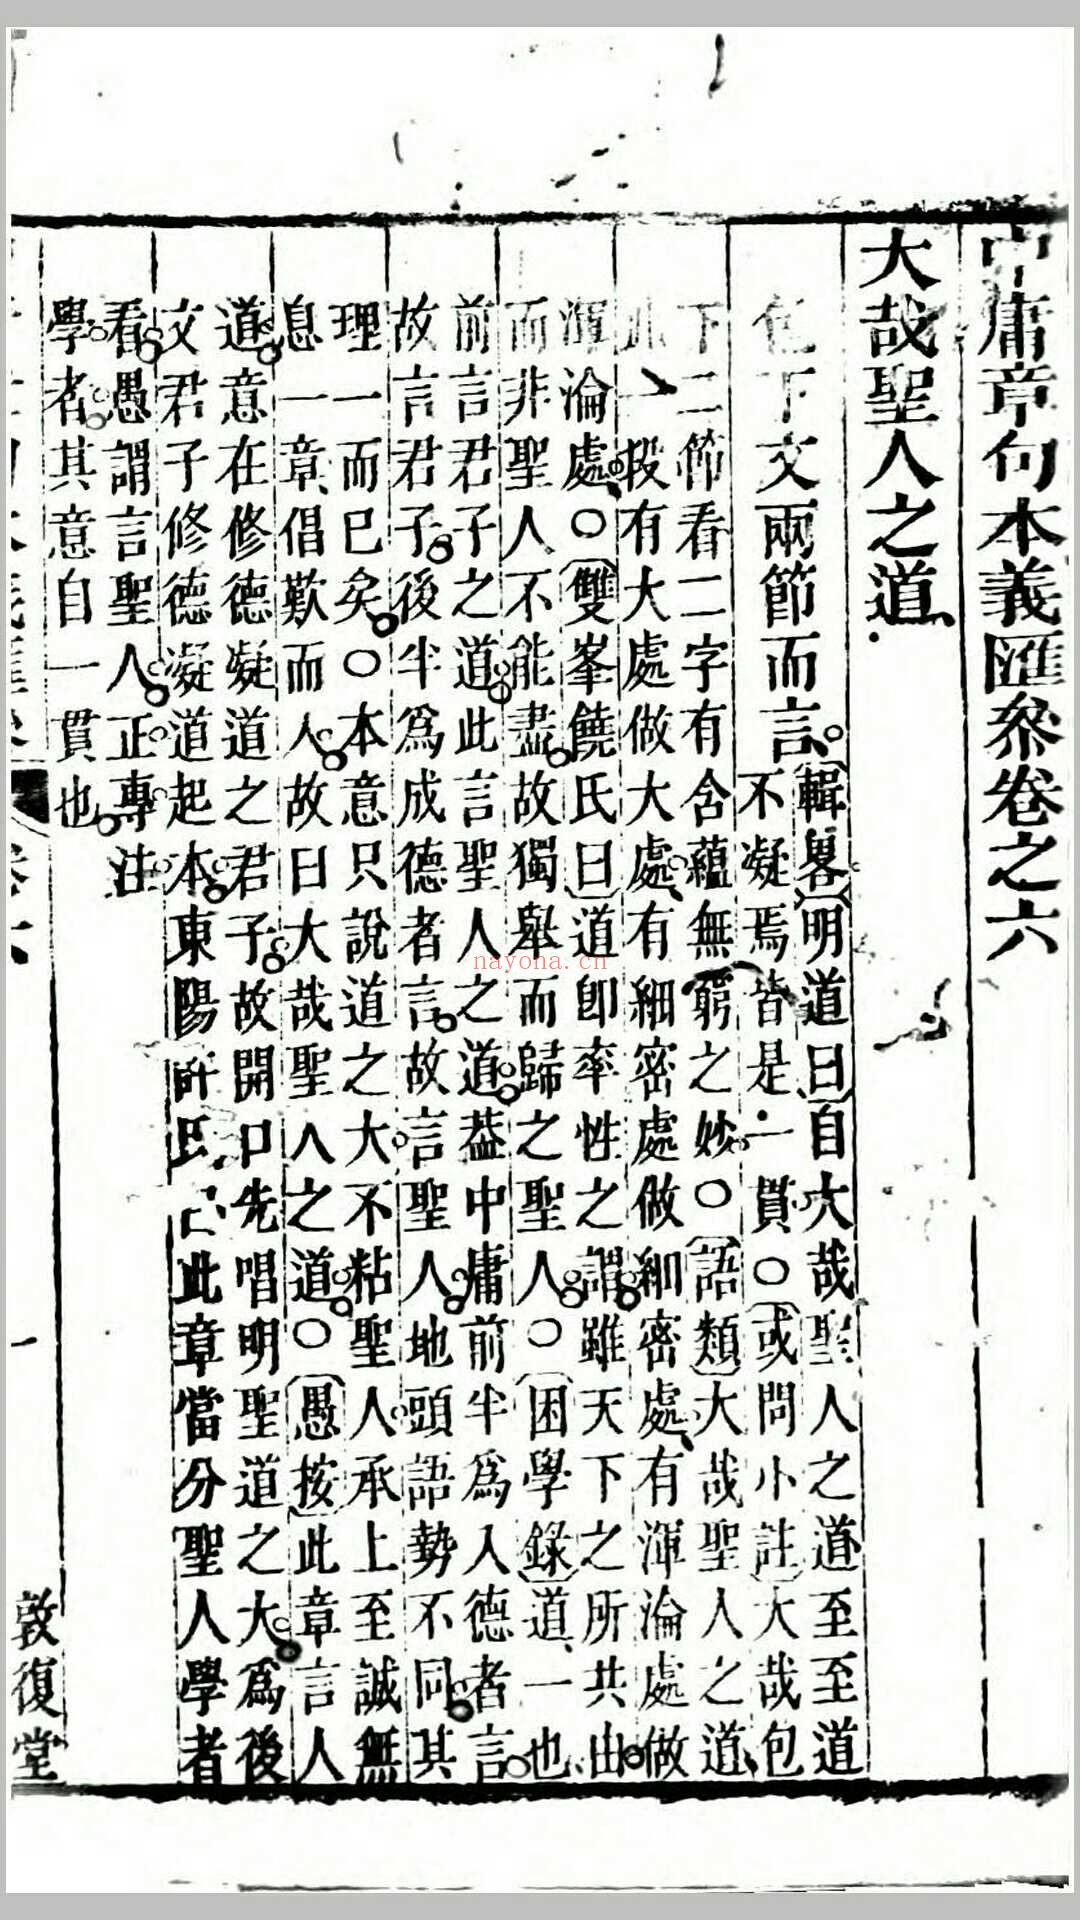 中庸章句本義匯參卷之六
大哉聖人之道
包下文兩節而言
輯畧明道曰自大哉聖人之道至至道
不凝焉皆是一貫○或問小註大哉包
下二節看二字有含蘊無窮之妙○語類大哉聖人之道
此一段有大處做大處有細密處做細密處有渾淪處做
渾淪處○雙峯饒氏曰道卽率性之謂雖天下之所共由
而非聖人不能盡故獨舉而歸之聖人○困學錄道一也
前言君子之道此言聖人之道葢中庸前半爲入德者言
故言君子後半爲成德者言故言聖人地頭語勢不同其
理一而已矣○本意只說道之大不粘聖人承上至誠無
息一章倡歎而人故曰大哉聖人之道○愚按此章言人
道意在修德凝道之君子故開口先唱明聖道之大爲後
文君子修德凝道起本東陽許氏曰此章當分聖人學者
看愚謂言聖人正專注
學者其意自一貫也
卷六
一
敦復堂
nayona.cn